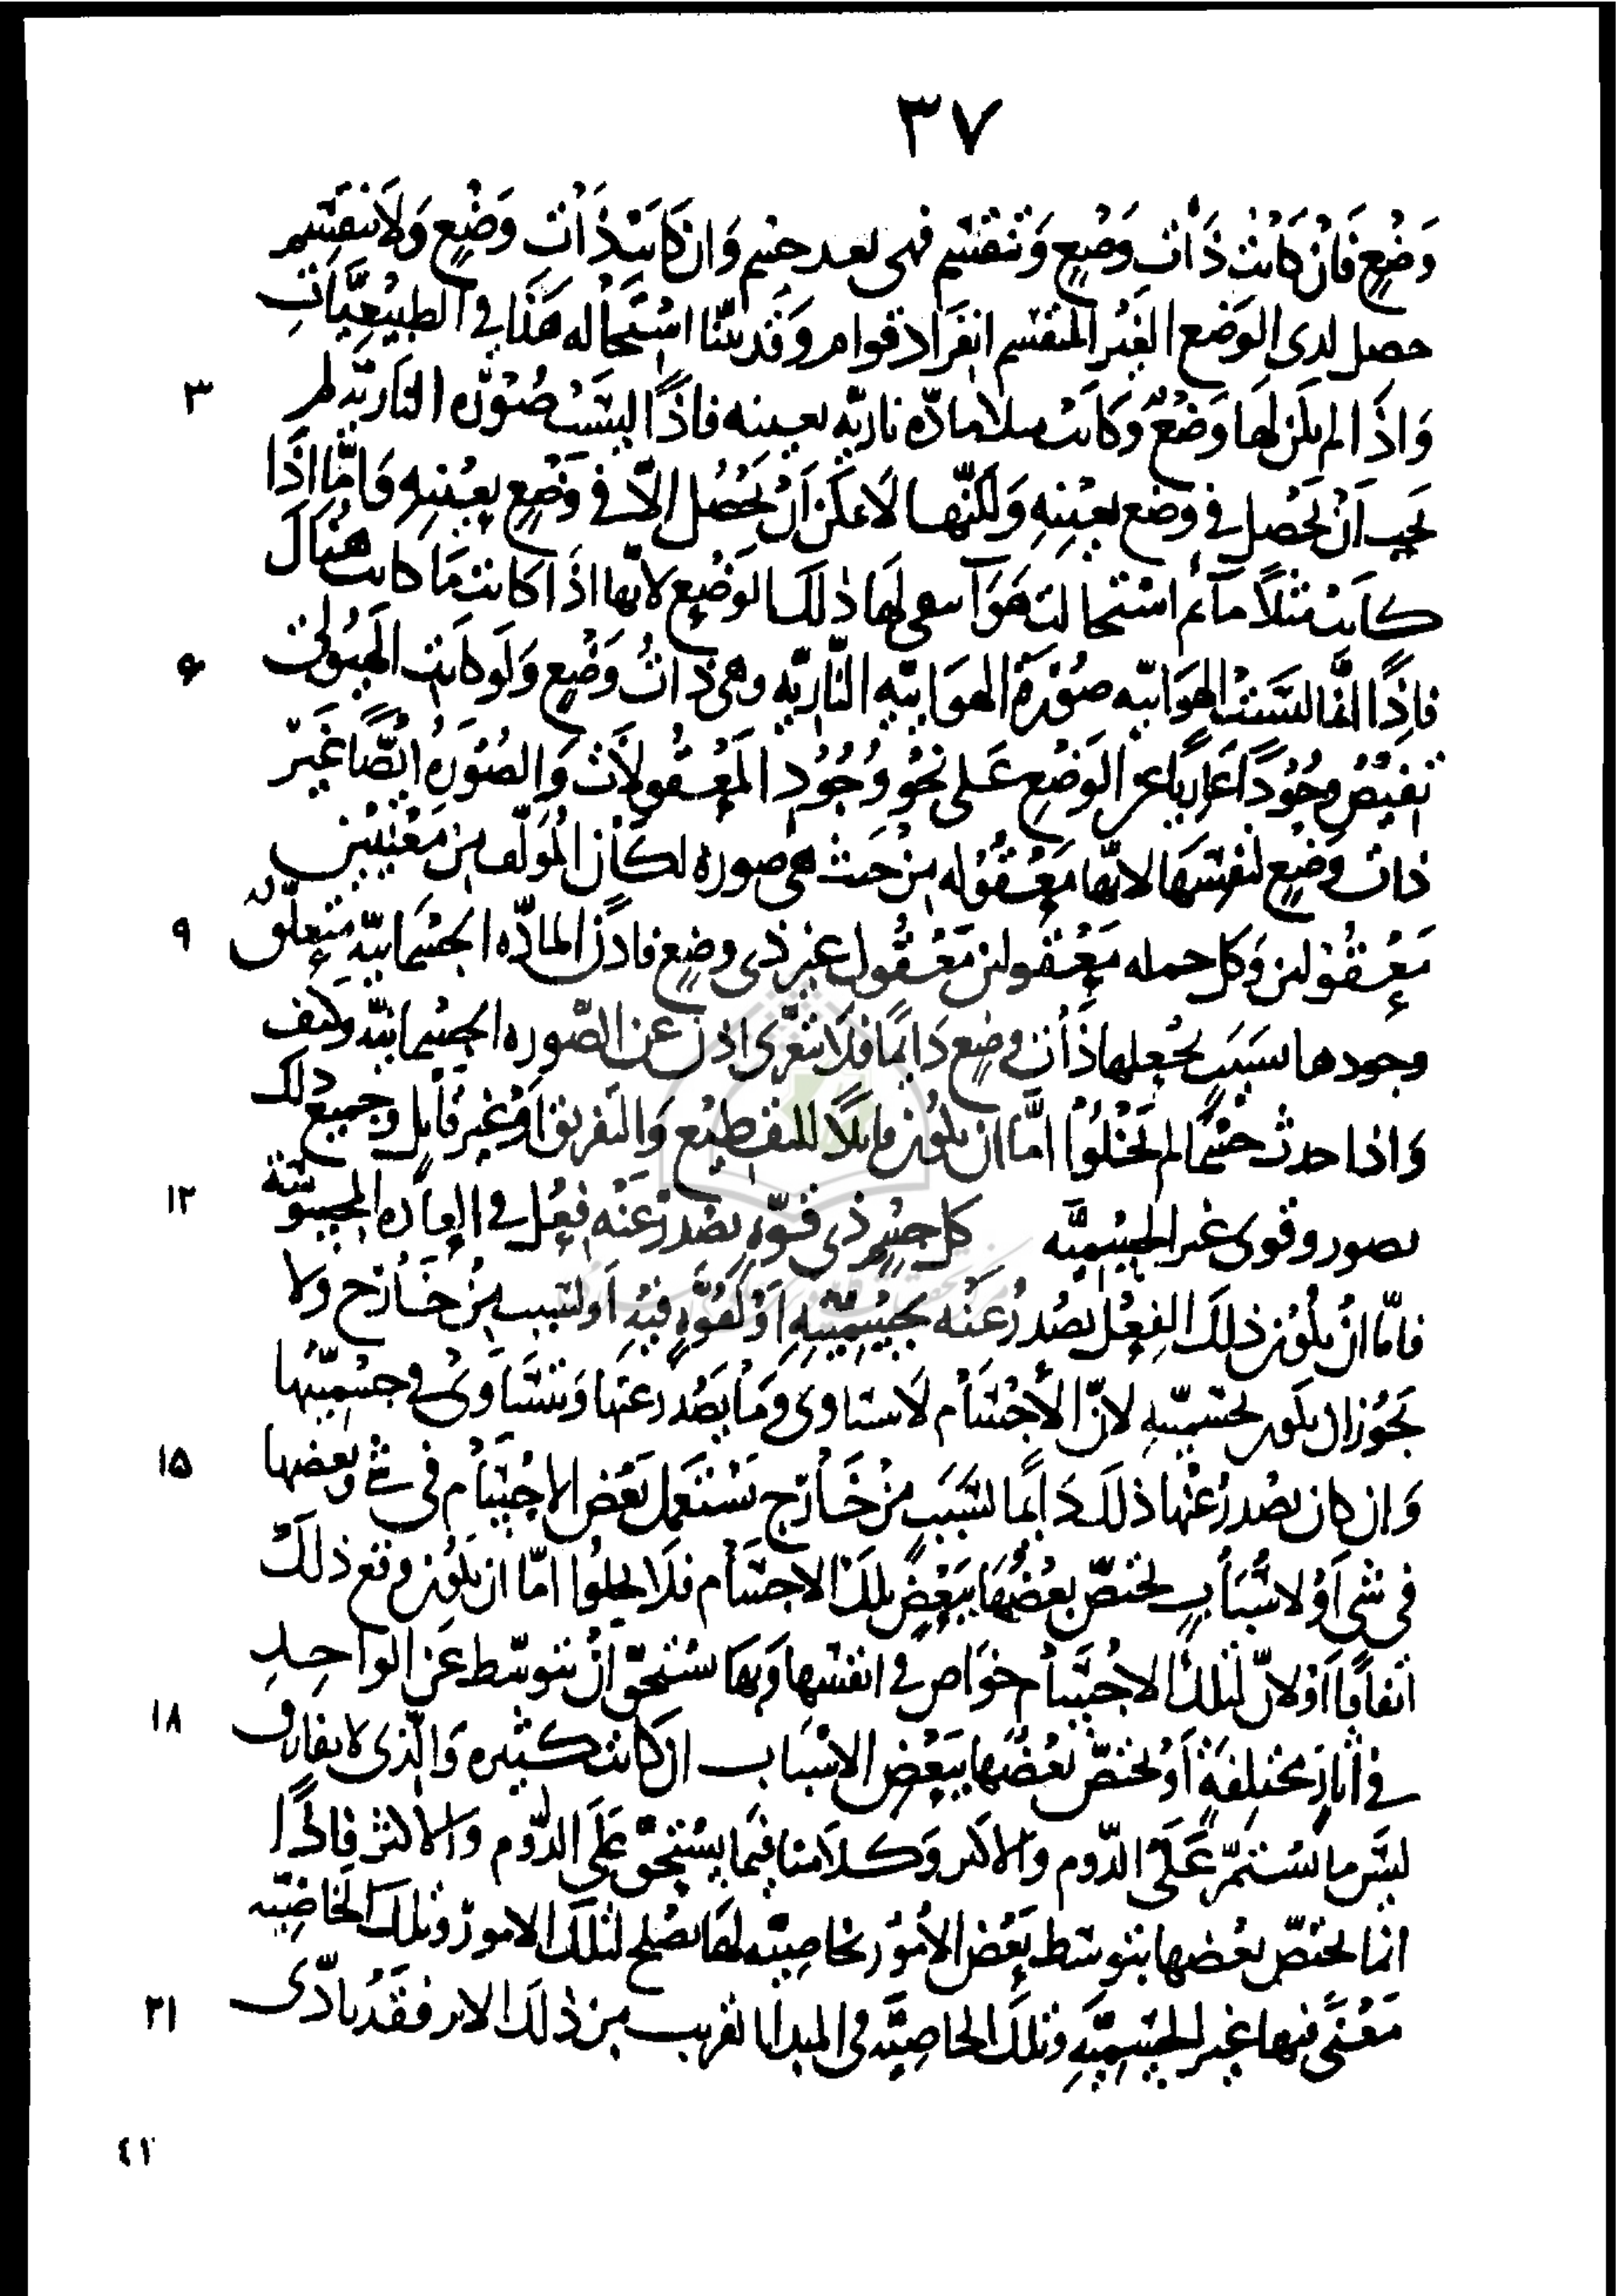 ٣٧
وَضْعٍ فَاِنْ كَانَتْ ذَاتَ وَضْعٍ وَتَنْقَسِم فهى بعد جسم وَان كَانَت ذَاتَ وَضْعٍ وَلَا تنقَسِم
حصل لذى الوَضع الغَيْر المنقسم انفراد قوام وَقَد بيّنّا استحاله هَذَا فِى الطبيعِيَّاتِ
٣
وَاِذَا لم يكن لَهَا وَضْعٌ وَكَانَت مثلا مادّه ناريّه بعينه فاذًا لبسَتْ صُوْرَه الناريّه لم
يَجِب اَنْ يَحْصل فى وَضع بعَيْنِهِ وَلٰكنّها لَا يمكن اَنْ يَحْصُل اِلّا فى وَضْعٍ بِعَيْنِهِ وَامَّا اذَا
كَانَت مثلاً مآء ثم استحالت هَوَآء بقى لهَا ذٰلكَ الوَضْعِ لانّها اذَا كانت مَا كانت هُنَاكَ
٦
فاِذًا انّما لبسَت الهَوَائيّه صُوْرَة الهوَائيّه النّاريّه وهى ذاتُ وَضْعٍ وَلَو كانت الهيولى
تقبض وجُوْدًا عَاريًا عن الوَضْعِ عَلى نَحْوِ وُجُوْد المَعْقُولَات وَالصُوَرُ ايْضًا غَيْر
ذات وَضْعٍ لنفسهَا لانّها مَعْقُوله مِنْ حَيث هى صوره لكَان المُؤلّف مِن مَعْنيَيْن
٩
مَعْقُولين وَكل جمله مَعْقُولين مَعْقُول غير ذى وضعٍ فاذن المادّه الجِسْمَانيّه مُتعلّق
وجودها بسَبَبٍ يَجْعلها ذَات وضعٍ دَائِمًا فَلَا تَتعَرّى اذن عن الصّوره الجِسْمانيّه وكيف
وَاذا حدث جسْمًا لم يَخْلُوا امَّا ان يكُون قابلًا للتقطيْع وَالتفريق اَوْ غير قَابل وجَمِيع ذلك
١٢
بصور وقوى غير الجِسْمِيَّه كل جسْمٍ ذى قوّهٍ يصْدر عَنْه فِعْل فى العاده المحْسُوسَة
فامّا انْ يكُون ذلِكَ الفِعْل يصْدر عَنْه بجِسْمِيّتِهِ اَوْ لقُوَّهٍ فيْهِ اَو لسَبب مِنْ خَارج وَلا
يَجُوْز ان يكون بجسميّتهِ لانّ الأَجْسَام لَا تتساوى وَمَا يَصْدر عنهَا وَتتسَاوَى فى جسْمِيّتهَا
١٥
وَان كان يصْدر عَنْها ذلكَ دَائِما لسَبَبٍ مِنْ خَارج تَسْتَعمل بَعْض الاجْسَام فى شئ وبعضها
فى شئ اَوْ لاسْبَاب يختصّ بعْضُهَا ببَعْضٍ تلكَ الاجسَام فلَا يخلُوا امّا ان يكُون وقع ذلكَ
اتفاقًا اَوْ لانّ لتلكَ الاجْسَام خوَاص فى انفسها وَبهَا تسْتحق انْ تتوسّط عَن الواحِدِ
١٨
فى اثار مختلِفَةٍ اَوْ يختصّ بعْضُهَا ببَعْضِ الاسْبَاب ان كَانت كثيره وَالّذى لا يفارق
ليسَ مَا يسْتمرّ عَلَى الدّوم وَالاكثر وَكلامنا فيمَا يسْتحق عَلَى الدّوم وَالاكثر فاذًا
انّما يختصّ بعْضها بتوسّط بَعْض الأمُوْر بخاصِيّه لهَا تصْلح لتلكَ الامور وَتلكَ الخاصِيّه
٢١
مَعْنًى فيها غير الجِسْمِيّهِ وَتلكَ الخاصِيَّه فى المبدا الغريب مِن ذلكَ الاثر فقَدْ تادّى
٤٢